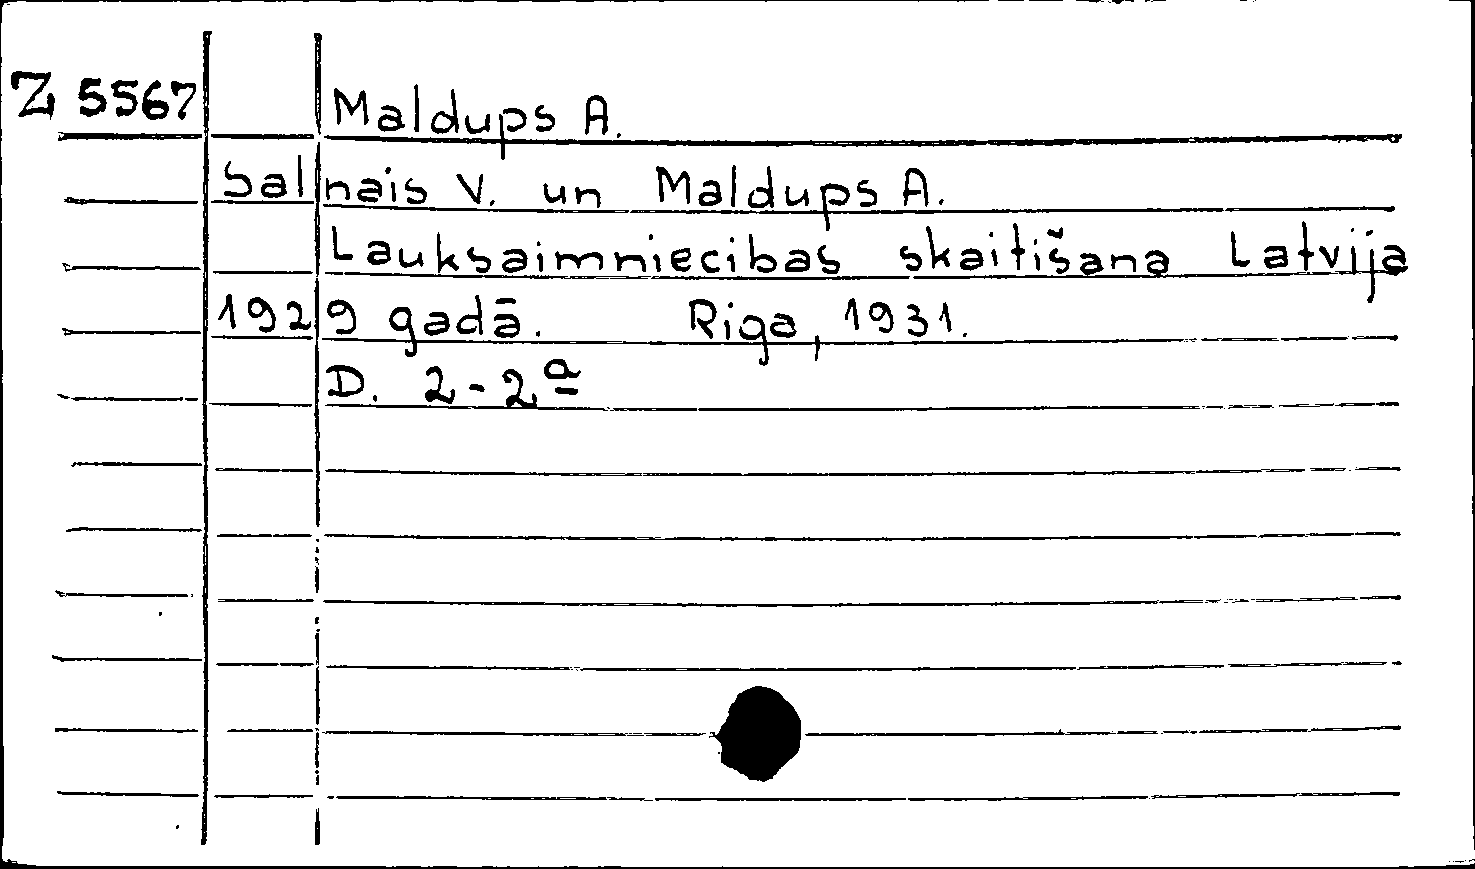 Z 5567 Maldups A.
Salnais V. un Maldups A.
Lauksaimniecibas skaitišana Latvija
1929 gadā. Riga, 1931.
D. 2-2a